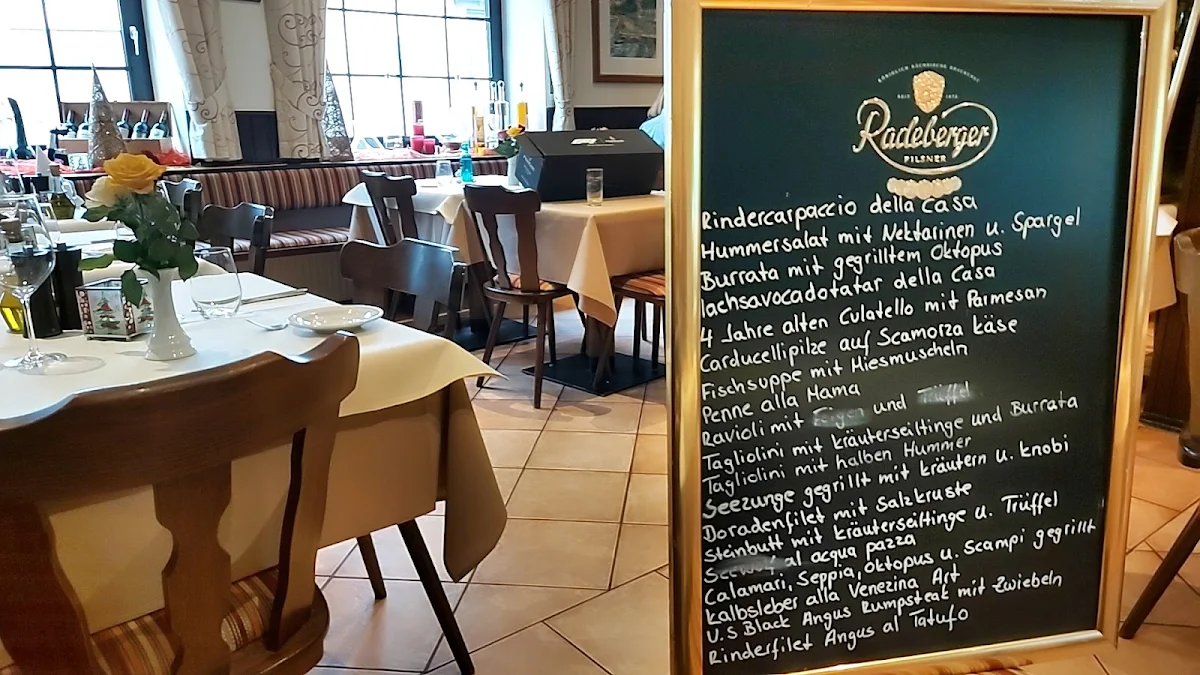 KÖNIGLICH SÄCHSISCHE BRAUKUNST
SEIT 1872
Radeberger
PILSNER
Rindercarpaccio della Casa
Hummersalat mit Nektarinen u. Spargel
Burrata mit gegrilltem Oktopus
lachsavocadotatar della Casa
4 Jahre alten Culatello mit Parmesan
Carducellipilze auf Scamorza käse
Fischsuppe mit Miesmuscheln
Penne alla Mama
Ravioli mit Feigen und Trüffel
Tagliolini mit kräuterseitlinge und Burrata
Tagliolini mit halben Hummer
Seezunge gegrillt mit kräutern u. knobi
Doradenfilet mit Salzkruste
Steinbutt mit kräuterseitlinge u. Trüffel
al acqua pazza
Calamari, Seppia, Oktopus u. Scampi gegrillt
kalbsleber alla Venezina Art
U.S Black Angus Rumpsteak mit Zwiebeln
Rinderfilet Angus al Tatufo